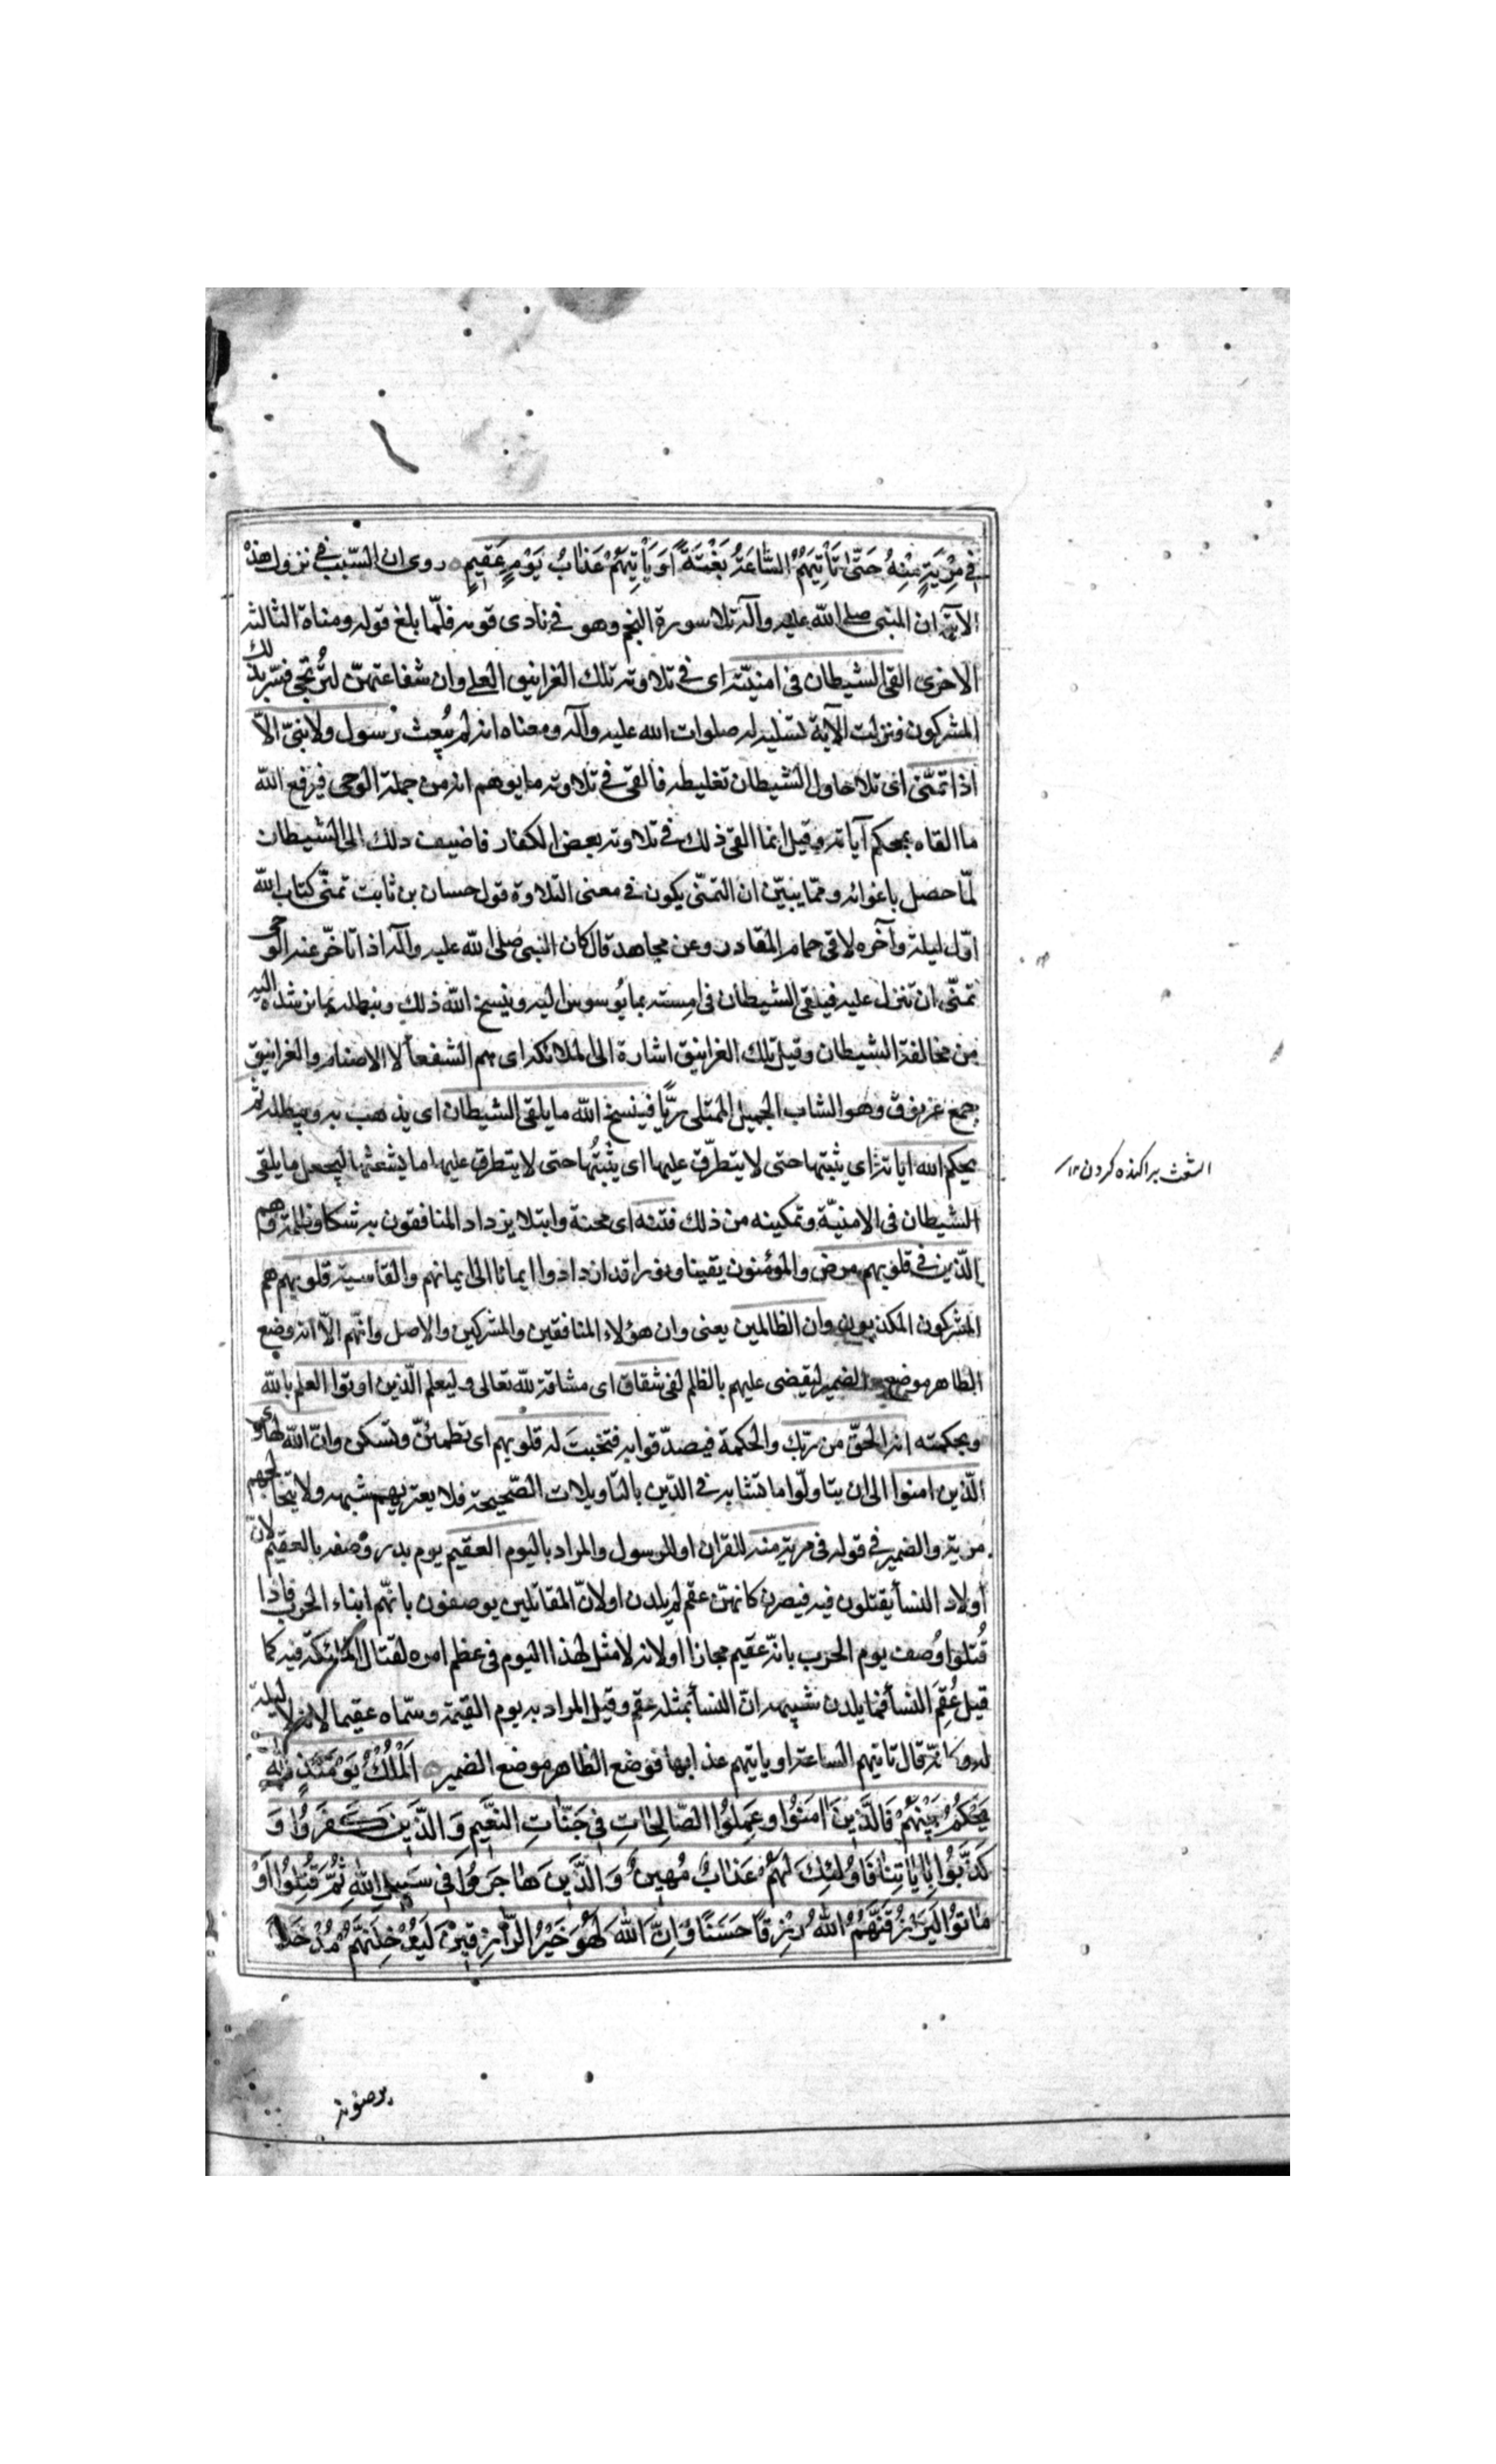 فِي مِرْيَةٍ مِنْهُ حَتّىٰ تَأْتِيَهُمُ السّٰاعَةُ بَغْتَةً أَوْ يَأْتِيَهُمْ عَذٰابُ يَوْمٍ عَقِيمٍ روى ان السّبب في نزول هذه
الآية ان النبى صلى الله عليه وآله تلا سورة النجم وهو في نادى قومه فلمّا بلغ قوله ومناة الثالثة
الاخرى القى الشيطان فى امنيّته اى في تلاوته تلك الغرانيق العلى وان شفاعتهنّ لتُرتجى فسّر بذلك
المشركون ونزلت الآية تسلية له صلوات الله عليه وآله ومعناه انه لم يُبعث رسول ولا نبىّ الّا
اذا تمنّى اى تلا حاول الشيطان تغليطه فالقى في تلاوته ما يوهم انه من جملة الوحى فيرفع الله
ما القاه بمحكم آياته وقيل انما القى ذلك في تلاوته بعض الكفار فاضيف ذلك الى الشيطان
لمّا حصل باغوائه وممّا يبيّن ان التمنّى يكون في معنى التلاوة قول حسان بن ثابت تمنّى كتاب الله
اوّل ليلة وآخره لاقى حمام المقادر وعن مجاهد قال كان النبى صلى الله عليه وآله اذا تاخّر عنه الوحى
تمنّى ان تنزل عليه فيلقى الشيطان فى امنيته بما يُوسوس اليه وينسخ الله ذلك ويبطله بما يرشده اليه
من مخالفة الشيطان وقيل تلك الغرانيق اشارة الى الملائكة اى هم الشفعأ لا الاصنام والغرانيق
جمع غرنوق وهو الشاب الجميل الممتلى ريًّا فينسخ الله ما يلقى الشيطان اى يذهب به ويبطله ثم
يحكم الله اياته اى يثبتها حتى لا يتطرّق عليها اى يثبتُها حتى لا يتطرق عليها ما يشعثها ليجعل ما يلقى
الشيطان فى الامنيّة وتمكينه من ذلك فتنه اى محنة وابتلا يزداد المنافقون به شكا وظلمة وهم
الّذين في قلوبهم مرض والمؤمنون يقينا ونورا قد ازدادوا ايمانا الى ايمانهم والقاسية قلوبهم هم
المشركون المكذبون وان الظالمين يعنى وان هؤلاء المنافقين والمشركين والاصل وانّهم الّا انه وضع
الظاهر موضع الضمير ليقضى عليهم بالظلم لفى شقاق اى مشاقة لله تعالى وليعلم الّذين اوتوا العلم بالله
وبحكمته انه الحقّ من ربّك والحكمة فيصدّقوا به فتخبتَ له قلوبهم اى تطمئنّ وتسكن وانّ الله لهادى
الّذين امنوا الى ان يتاولّوا ما تشابه في الدّين بالتّاويلات الصّحيحة فلا يعتريهم شبهه ولا يتخالجهم
مرية والضمير في قوله فى مرية منه للقران او للرسول والمراد باليوم العقيم يوم بدر وُصف بالعقيم لانّ
أولاد النسأ يقتلون فيه فيصرن كانهنّ عقم لم يلدن او لانّ المقاتلين يوصفون بانّهم ابناء الحرب فاذا
قُتلوا وُصف يوم الحرب بانّه عقيم مجازا او لانه لا مثل لهذا اليوم فى عظم امره لقتال الملائكة فيه كما
قيل عُقِمَ النسأ فما يلدن شبيهه انّ النسأ بمثله عقم وقيل المراد به يوم القيمة وسمّاه عقيما لانه لا ليلة
له كانّه قال تاتيهم الساعة او ياتيهم عذابها فوضع الظاهر موضع الضمير اَلْمُلْكُ يَوْمَئِذٍ لِلّٰهِ
يَحْكُمُ بَيْنَهُمْ فَالَّذِينَ اٰمَنُوا وَعَمِلُوا الصّٰالِحٰاتِ فِي جَنّٰاتِ النَّعِيمِ وَالَّذِينَ كَفَرُوا وَ
كَذَّبُوا بِاٰيٰاتِنٰا فَاُولٰئِكَ لَهُمْ عَذٰابٌ مُهِينٌ وَالَّذِينَ هٰاجَرُوا فِي سَبِيلِ اللّٰهِ ثُمَّ قُتِلُوا اَوْ
مٰاتُوا لَيَرْزُقَنَّهُمُ اللّٰهُ رِزْقًا حَسَنًا وَاِنَّ اللّٰهَ لَهُوَ خَيْرُ الرّٰازِقِينَ لَيُدْخِلَنَّهُمْ مُدْخَلاً
الشعث پراكنده كردن ١٢
يرضونه